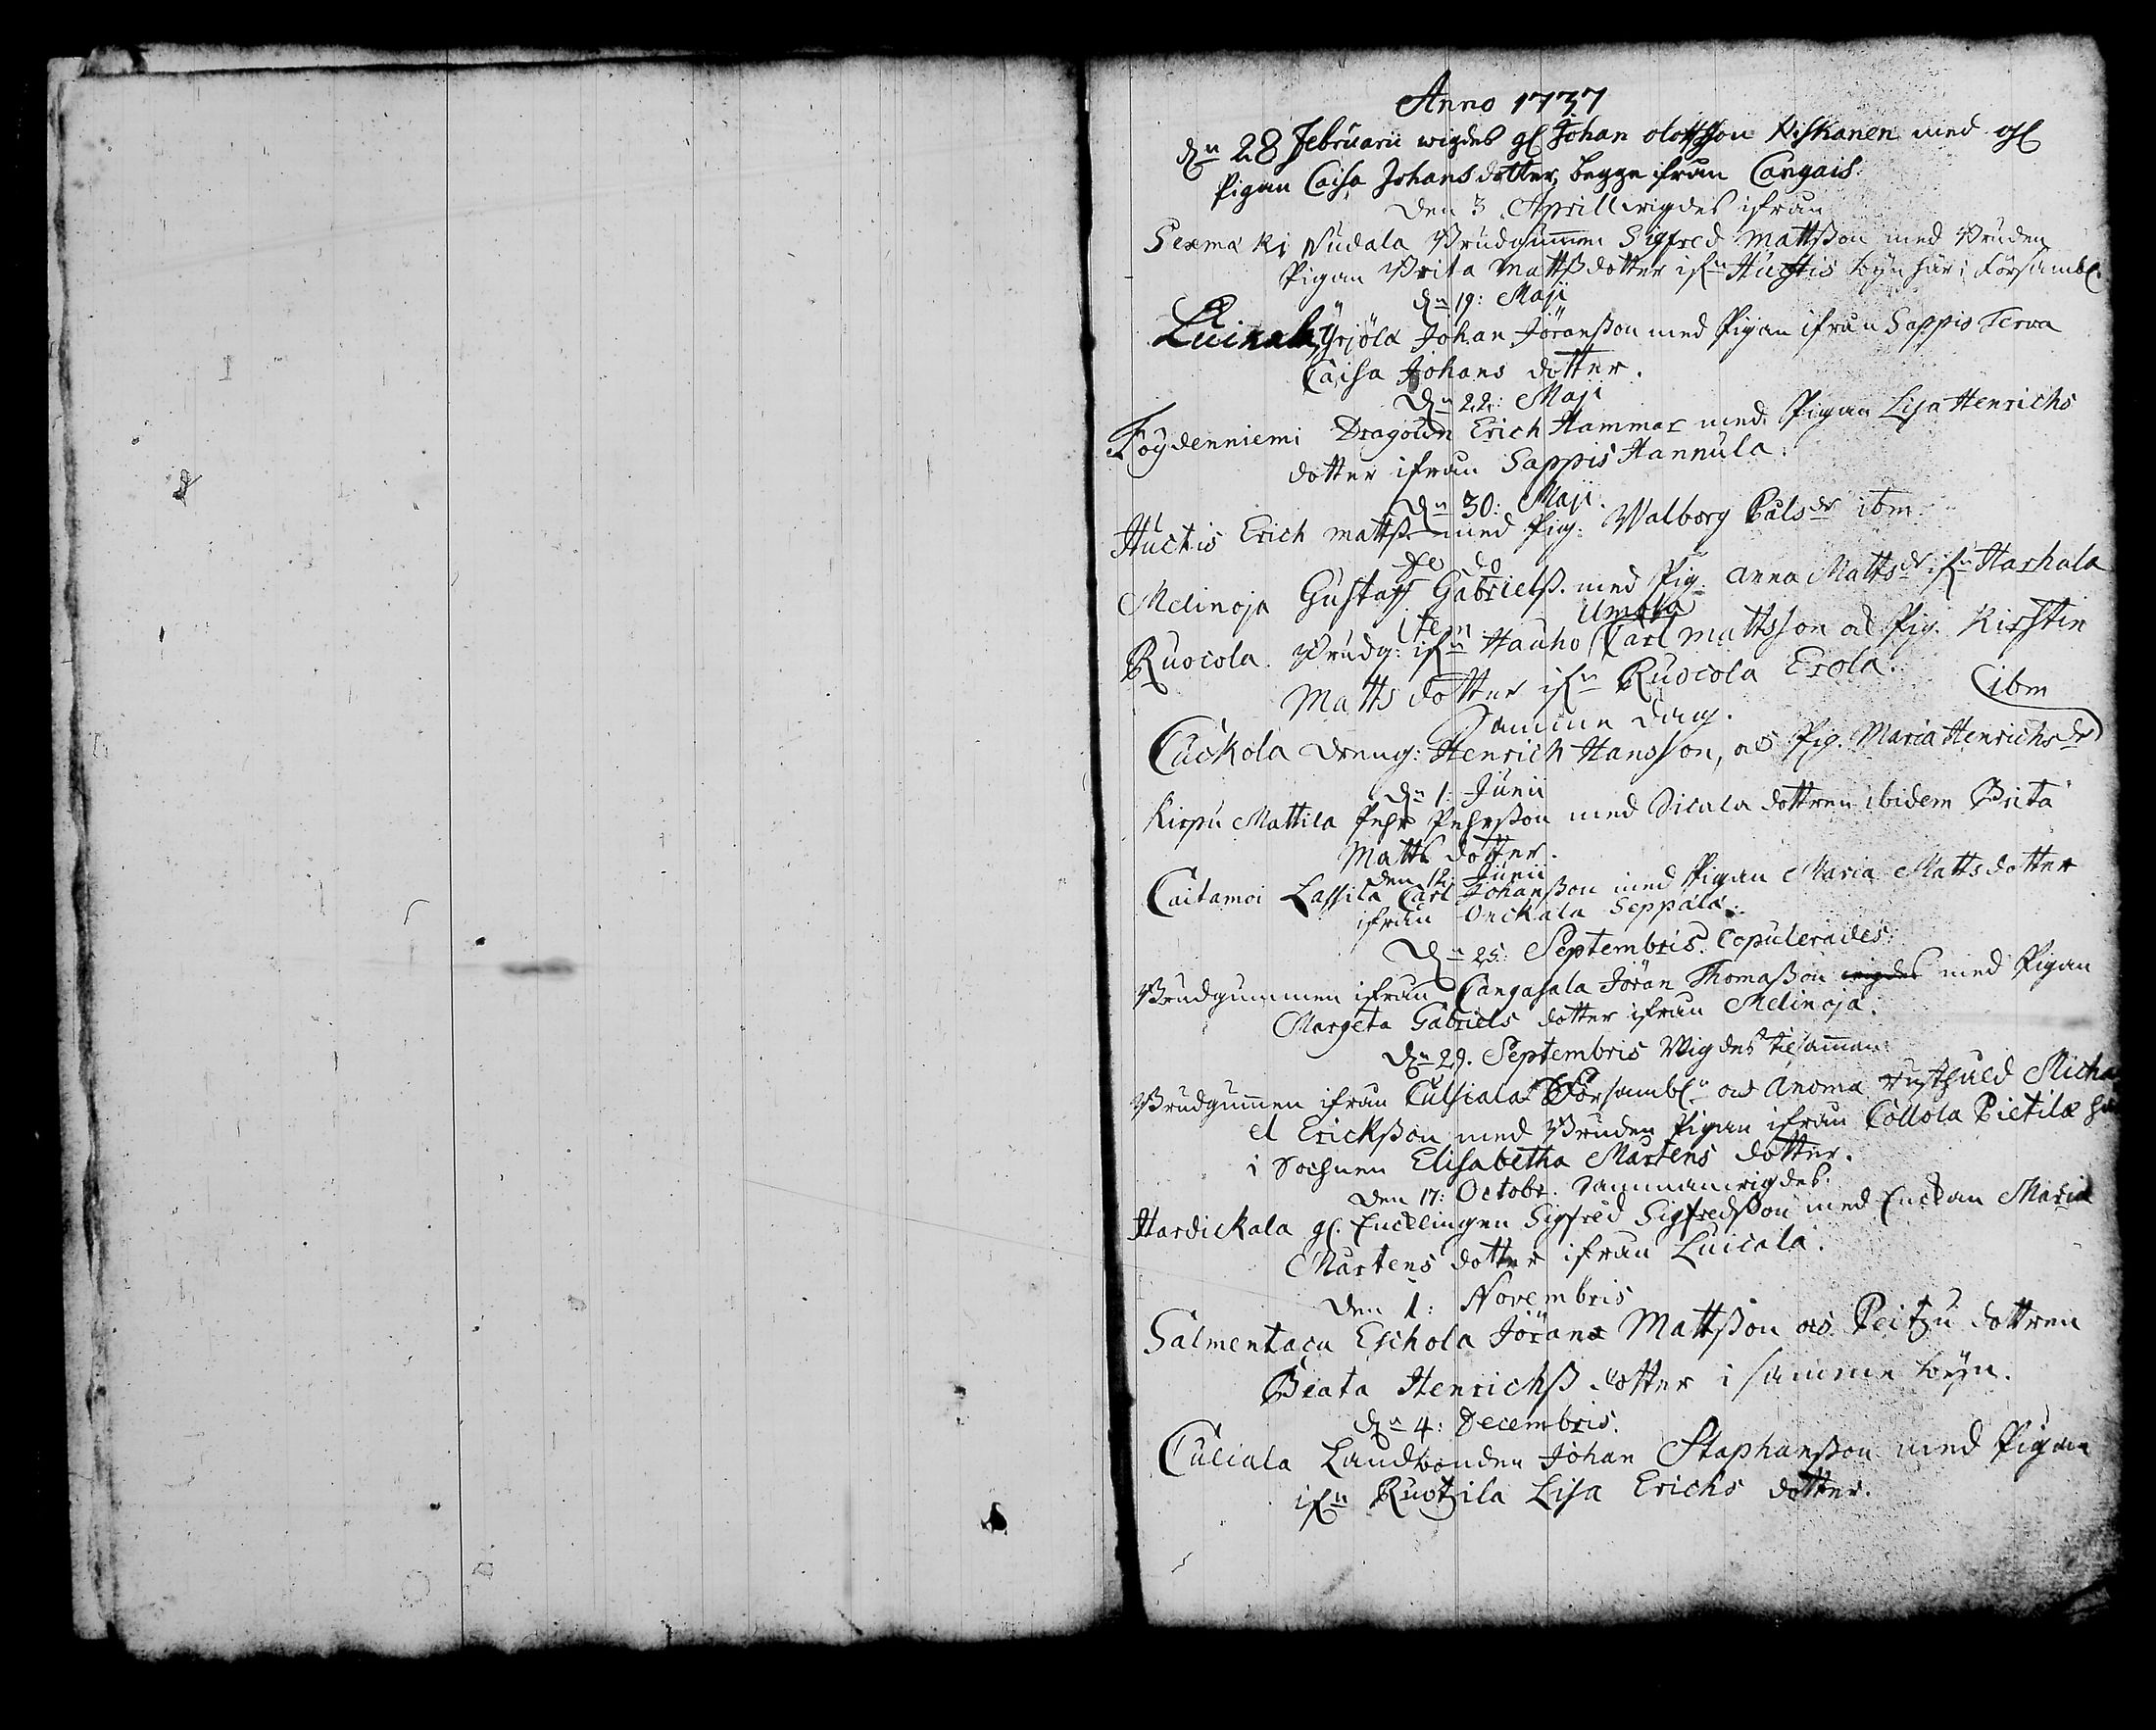 Anno 1737
dn 28 Februarii wigdes gl Johan Olofsson Kiskanen med gl
Pigan Caisa Johans dotter, begge ifrån Cangais.
Den 3 Aprill wigdes ifrån
Sexmäki Nudala Brudgummen Sigfred Mattsson med Bruden
Pigan Brita Mattsdotter ifn Huctis byn här i Försambl.
dn 19: Maji
Luicala Yrjölä Johan Jöransson med Pigan ifrån Sappis Terva
Caisa Johans dotter.
dn 22: Maji
Föydenniemi Dragoun Erich Hammar med Pigan Lisa Henrichs
dotter ifrån Sappis Hannula.
dn 30: Maji.
Huctis Erich Mattss. med Pig. Walborg Påls dr ibm
do do
Melinoja Gustaff Gabrielss. med Pig. Anna Matts dr ifn Harhala
item Umola
Ruocola. Brudg: ifn Hauho Carl Mattsson och Pig. Kirstin
Matts dotter ifn Ruocola Erola.
Samme dag. ibm
Cuckola dreng: Henrich Hansson, och Pig. Maria Henrichs dr
dn 1: Junii
Kirpu Mattila Pehr Pehrsson med Sicala dottren ibidem Brita
Matts dotter.
den 12: Junii
Caitamoi Lassila Carl Johansson med Pigan Maria Matts dotter
ifrån Onckala Seppälä.
dn 25: Septembris. Copulerades:
Brudgummen ifrån Cangasala Jöran Thomasson wigdes med Pigan
Margeta Gabriels dotter ifrån Melinoja.
dn 29. Septembris Wigdes tilsamman
Brudgummen ifrån Culsiala Försambln och Anoma rusthåld Micha
el Ericksson med Bruden Pigan ifrån Collola Pietilæ hä
i Sochnen Elisabetha Mårtens dotter.
den 17: Octobr. Sammanwigdes.
Hardickala gl. Encklingen Sigfred Sigfredsson med Enckan Maria
Mårtens dotter ifrån Luicala.
den 1: Novembris
Salmentaca Eschola Jöran Mattsson och Peitzu dottren
Beata Henrichss dotter i samme byn.
dn 4: Decembris.
Culiala Landbonden Johan Staphansson med Pigan
ifn Ruotzila Lisa Erichs dotter.